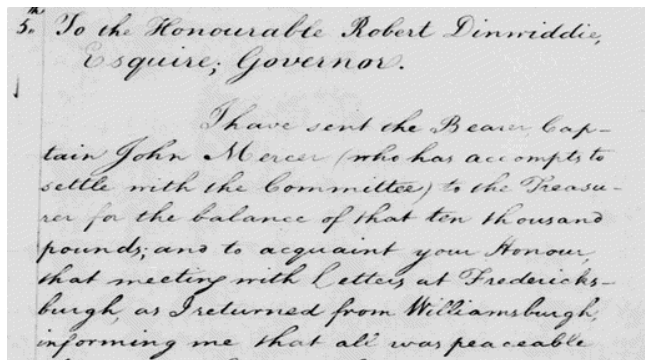 5.th To the Honourable Robert Dinwiddie,
Esquire; Governor.
I have sent the Bearer Cap-
tain John Mercer (who has accompts to
settle with the Committee) to the Treasu-
rer for the balance of that ten thousand
pounds; and to acquaint your Honour,
that meeting with Letters at Fredericks-
burgh, as I returned from Williamsburgh,
informing me that all was peaceable